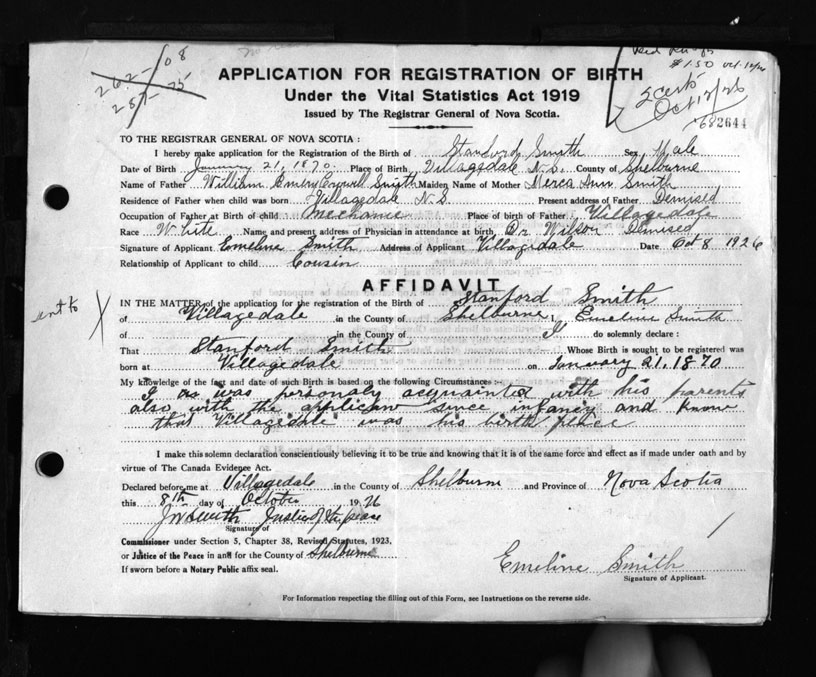 262-08
257-75
$1.50 Oct. 12/26
2 certs
Oct 12/26
682644
APPLICATION FOR REGISTRATION OF BIRTH
Under the Vital Statistics Act 1919
Issued by The Registrar General of Nova Scotia.
TO THE REGISTRAR GENERAL OF NOVA SCOTIA :
I hereby make application for the Registration of the Birth of Stanford Smith Sex Male
Date of Birth January 21, 1870. Place of Birth Villagedale N.S. County of Shelburne
Name of Father William Emery Crowell Smith Maiden Name of Mother Merca Ann. Smith
Residence of Father when child was born Villagedale N.S Present address of Father Demised
Occupation of Father at Birth of child Mechanic Place of birth of Father Villagedale
Race White Name and present address of Physician in attendance at birth, Dr. Wilson Demised
Signature of Applicant Emeline Smith Address of Applicant Villagedale Date Oct 8 1926
Relationship of Applicant to child Cousin
AFFIDAVIT
sent to X
IN THE MATTER of the application for the registration of the Birth of Stanford Smith
of Villagedale in the County of Shelburne, Emeline Smith
of in the County of I do solemnly declare :
That Stanford Smith Whose Birth is sought to be registered was
born at Villagedale on January 21, 1870
My knowledge of the fact and date of such Birth is based on the following Circumstance :-
I as was personaly acquainted with his parents
also with the applican since infancy and know
that Villagedale was his birth place
I make this solemn declaration conscientiously believing it to be true and knowing that it is of the same force and effect as if made under oath and by
virtue of The Canada Evidence Act.
Declared before me at Villagedale in the County of Shelburne and Province of Nova Scotia
this 8th day of October 1926
J W Smith Justice of the peace
Signature of
Commissioner under Section 5, Chapter 38, Revised Statutes, 1923,
or Justice of the Peace in and for the County of Shelburne
If sworn before a Notary Public affix seal.
Emeline Smith
Signature of Applicant.
For Information respecting the filling out of this Form, see Instructions on the reverse side.